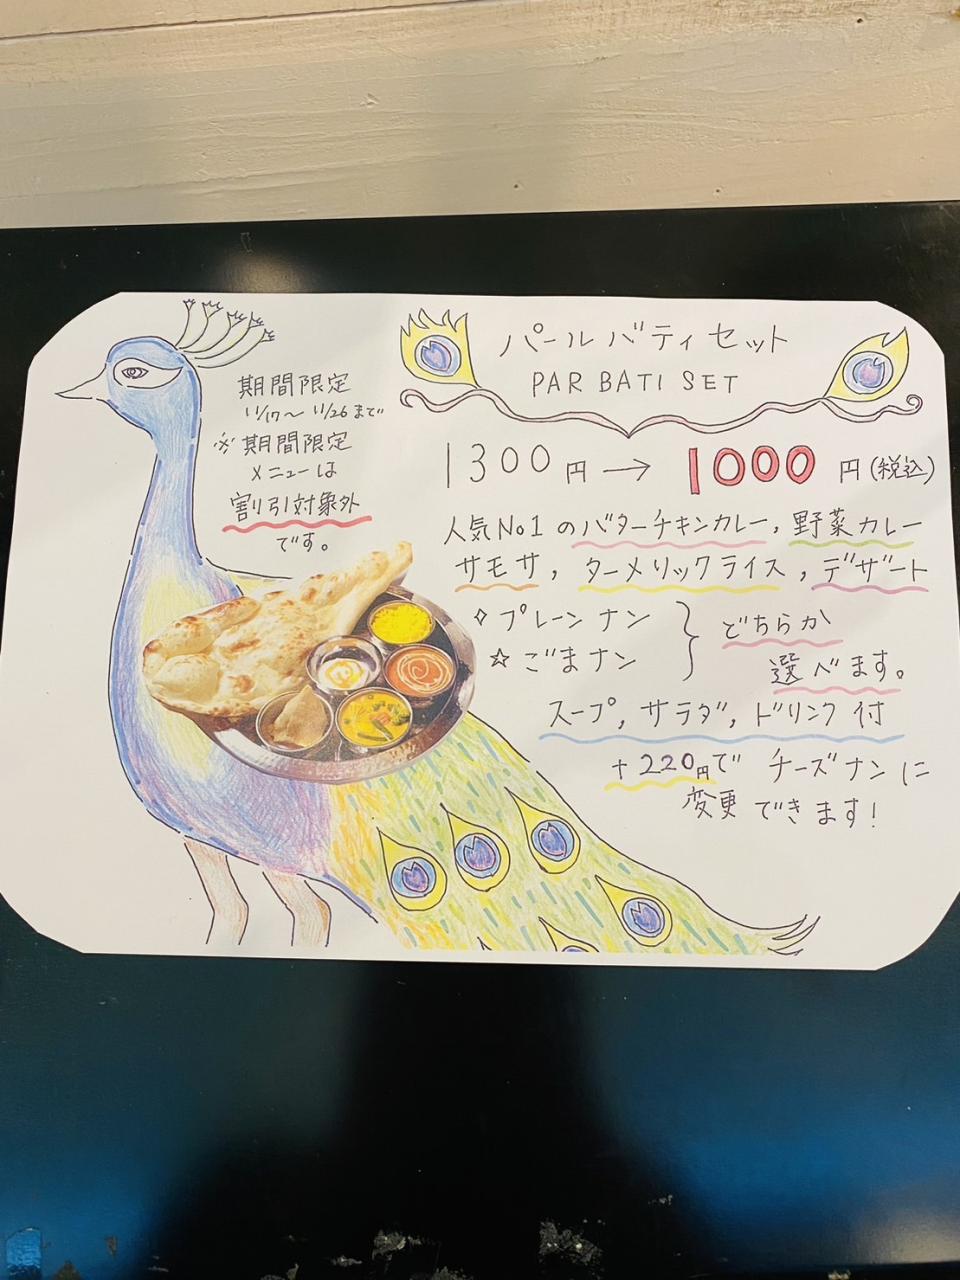 期間限定
11/17〜11/26まで
※期間限定
メニューは
割引対象外
です。
パールバティセット
PARBATI SET
1300円→1000円(税込)
人気No1のバターチキンカレー,野菜カレー
サモサ,ターメリックライス,デザート
✧プレーンナン
☆ごまナン
どちらか
選べます。
スープ,サラダ,ドリンク付
+220円でチーズナンに
変更できます!